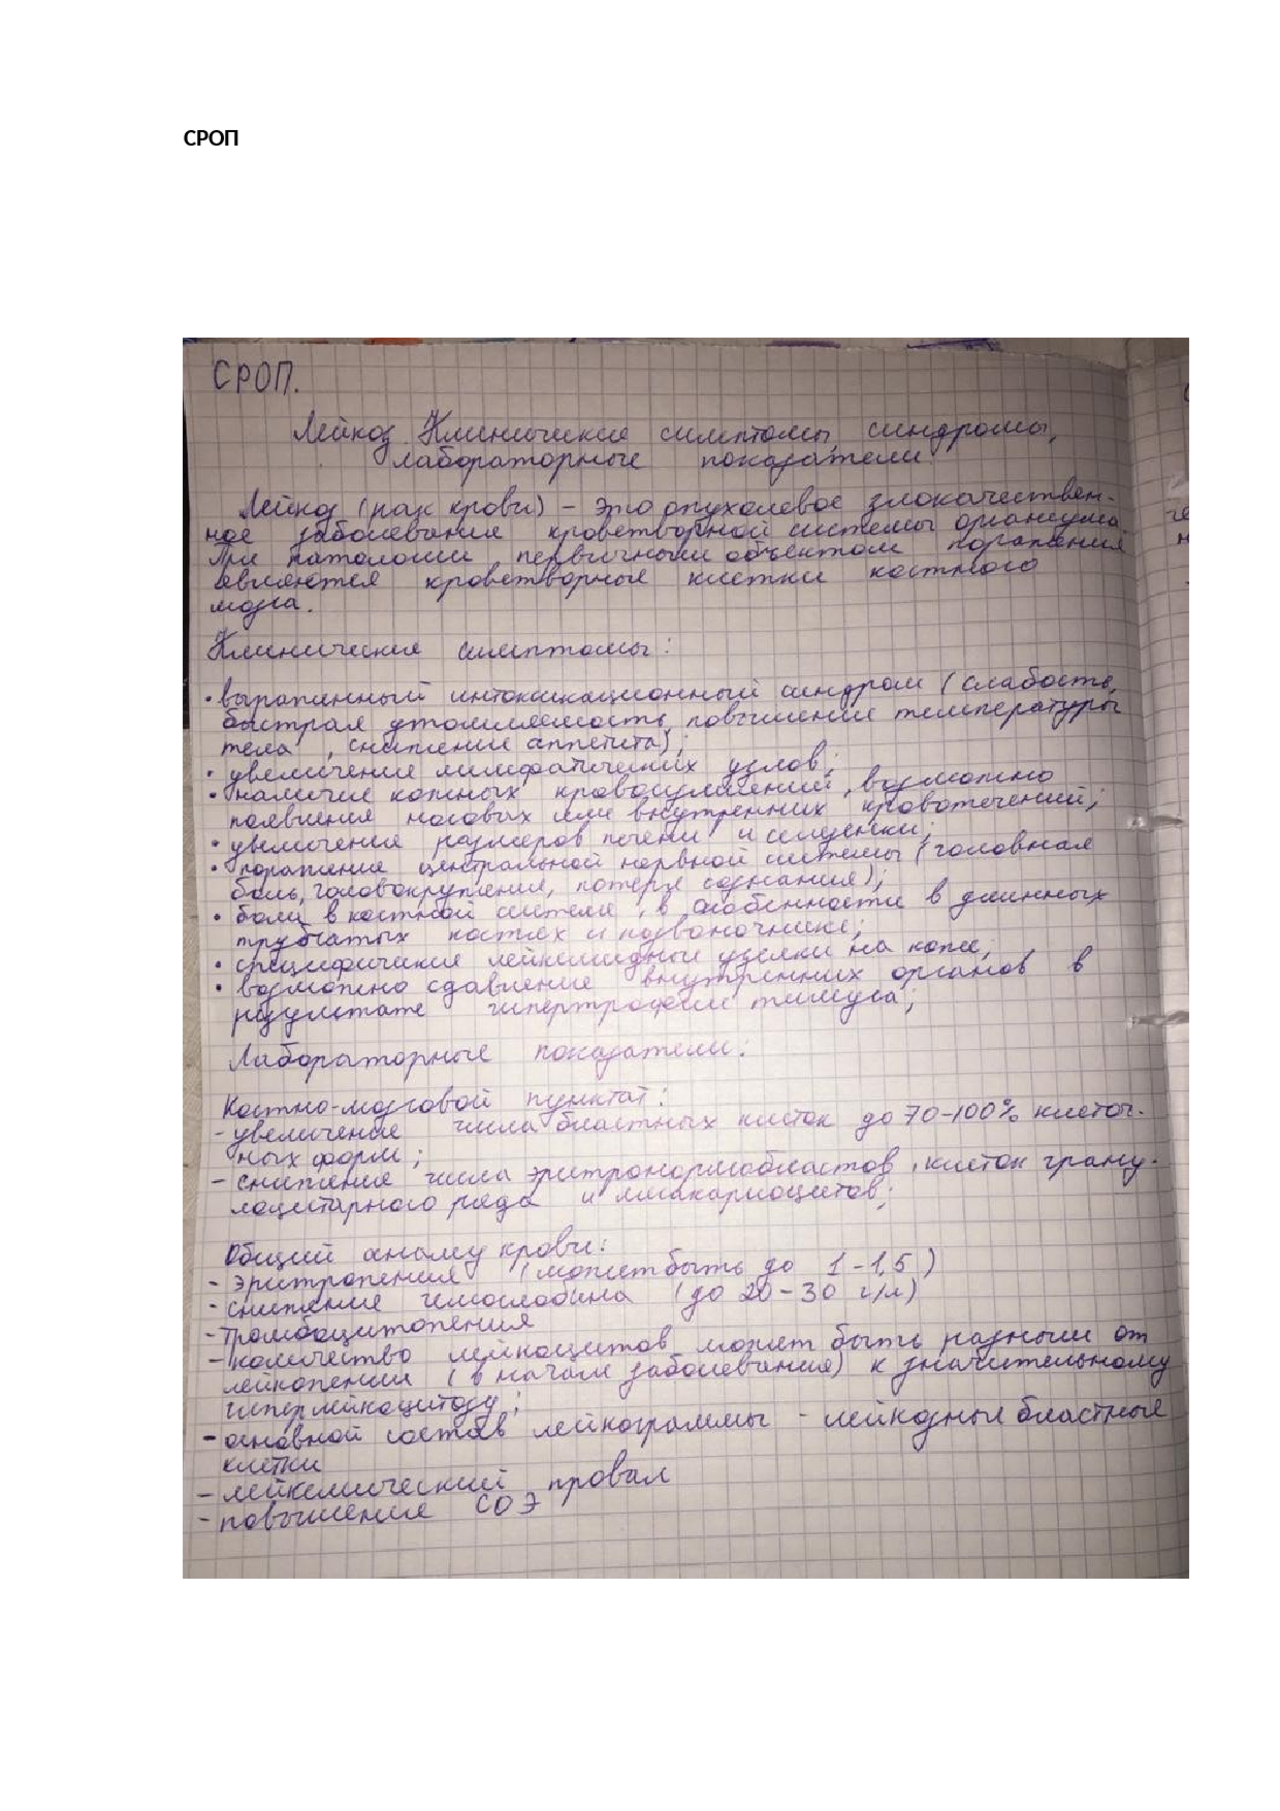 СРОП
СРОП.
Лейкоз. Клинические симптомы, синдромы,
лабораторные показатели.
Лейкоз (рак крови) – это опухолевое злокачествен-
ное заболевание кроветворной системы организма.
При патологии первичными объектом поражения
являются кроветворные клетки костного
мозга.
Клинические симптомы:
• выраженный интоксикационный синдром (слабость,
быстрая утомляемость, повышение температуры
тела , снижение аппетита);
• увеличение лимфатических узлов;
• наличие кожных кровоизлияний, возможно
появление носовых или внутренних кровотечений;
• увеличение размеров печени и селезенки;
• поражение центральной нервной системы (головная
боль, головокружения, потеря сознания);
• боли в костной системе, в особенности в длинных
трубчатых костях и позвоночнике;
• специфические лейкемидные узелки на коже;
• возможно сдавление внутренних органов в
результате гипертрофии тимуса;
Лабораторные показатели:
Костно-мозговой пунктат:
- увеличение числа бластных клеток до 70-100% клеточ-
ных форм;
- снижение числа эритронормобластов, клеток грану-
лоцитарного ряда и мегакариоцитов;
Общий анализ крови:
- эритропения (может быть до 1-1,5)
- снижение гемоглобина (до 20-30 г/л)
- тромбоцитопения
- количество лейкоцитов может быть разным от
лейкопении (в начале заболевания) к значительному
гиперлейкоцитозу;
- основной состав лейкограммы - лейкозные бластные
клетки
- лейкемический провал
- повышение СОЭ